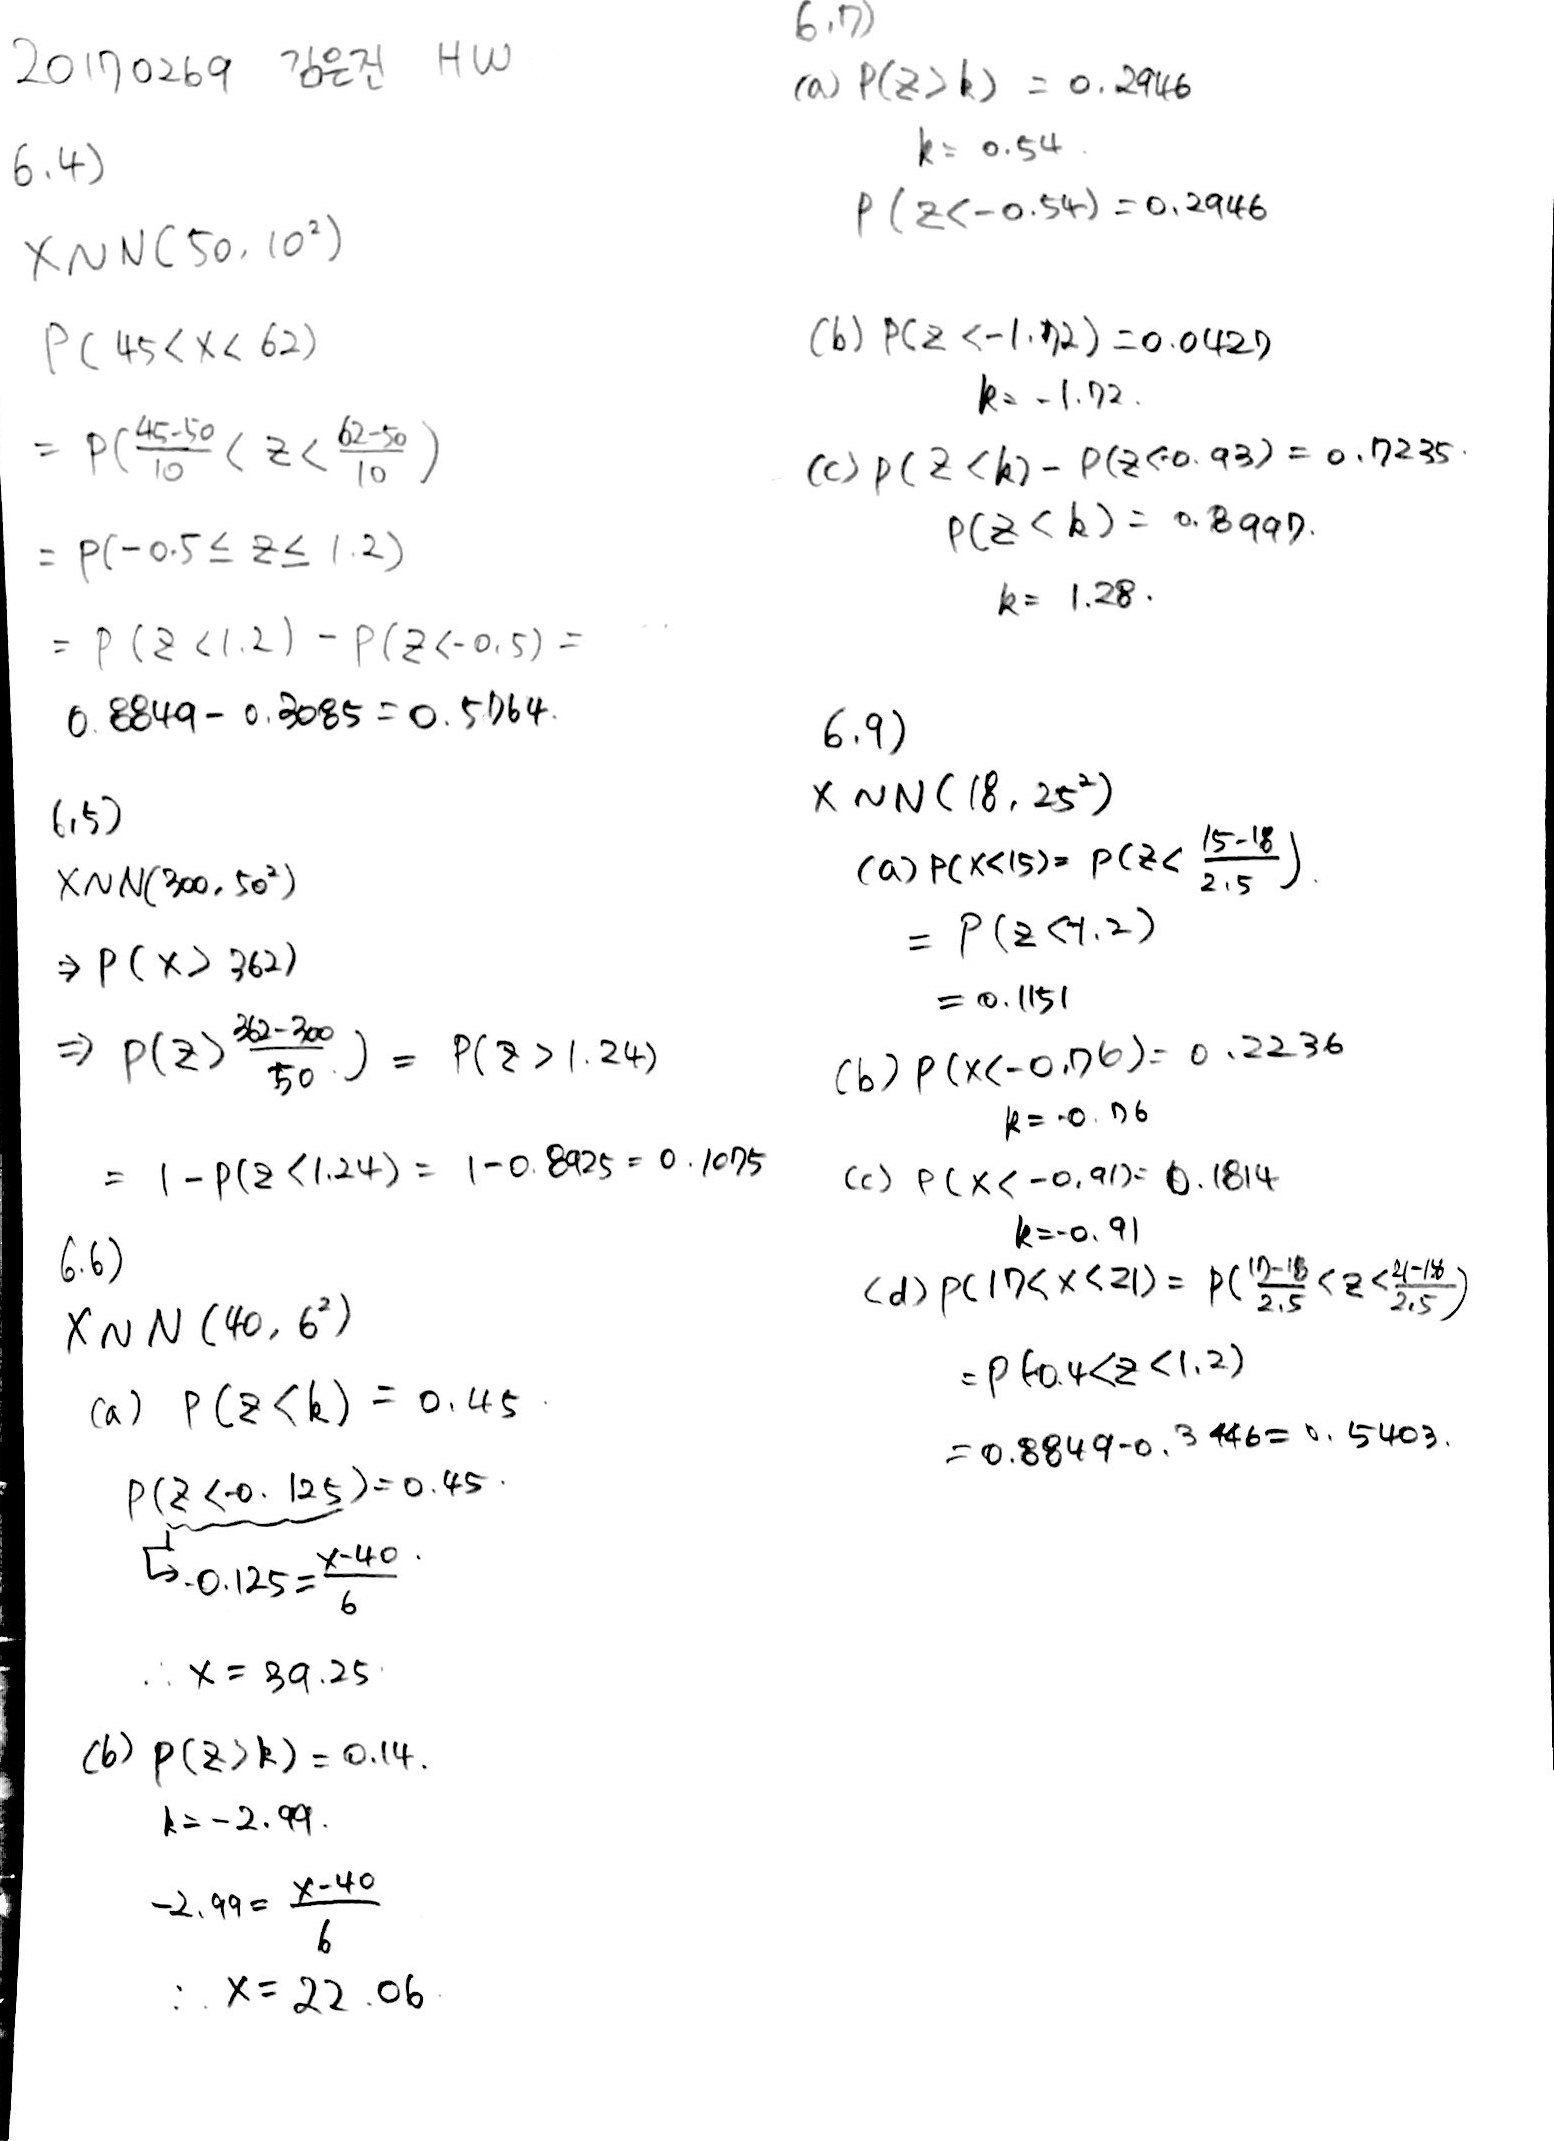 20170269 김은진 HW
6.4)
X~N(50, 10²)
P(45<X<62)
= P(45-50/10 < Z < 62-50/10)
= P(-0.5 ≤ Z ≤ 1.2)
= P(Z<1.2) - P(Z<-0.5) =
0.8849 - 0.3085 = 0.5764.
6.5)
X~N(300, 50²)
⇒ P(X>362)
⇒ P(Z> 362-300/50) = P(Z>1.24)
= 1-P(Z<1.24) = 1-0.8925 = 0.1075
6.6)
X~N(40, 6²)
(a) P(Z<k) = 0.45.
P(Z<-0.125)=0.45.
↳ -0.125 = X-40/6.
∴ X = 39.25.
(b) P(Z>k) = 0.14.
k = -2.99.
-2.99 = X-40/6
∴ X = 22.06.
6.7)
(a) P(Z>k) = 0.2946
k = 0.54.
P(Z<-0.54) = 0.2946
(b) P(Z<-1.72) = 0.0427
k = -1.72.
(c) P(Z<k) - P(Z<-0.93) = 0.7235.
P(Z<k) = 0.8997.
k = 1.28.
6.9)
X~N(18, 25²)
(a) P(X<15) = P(Z< 15-18/2.5).
= P(Z<-1.2)
= 0.1151
(b) P(X<-0.76) = 0.2236
k = -0.76
(c) P(X<-0.91) = 0.1814
k = -0.91
(d) P(17<X<21) = P(17-18/2.5 < Z < 21-18/2.5)
= P(-0.4<Z<1.2)
= 0.8849-0.3446 = 0.5403.